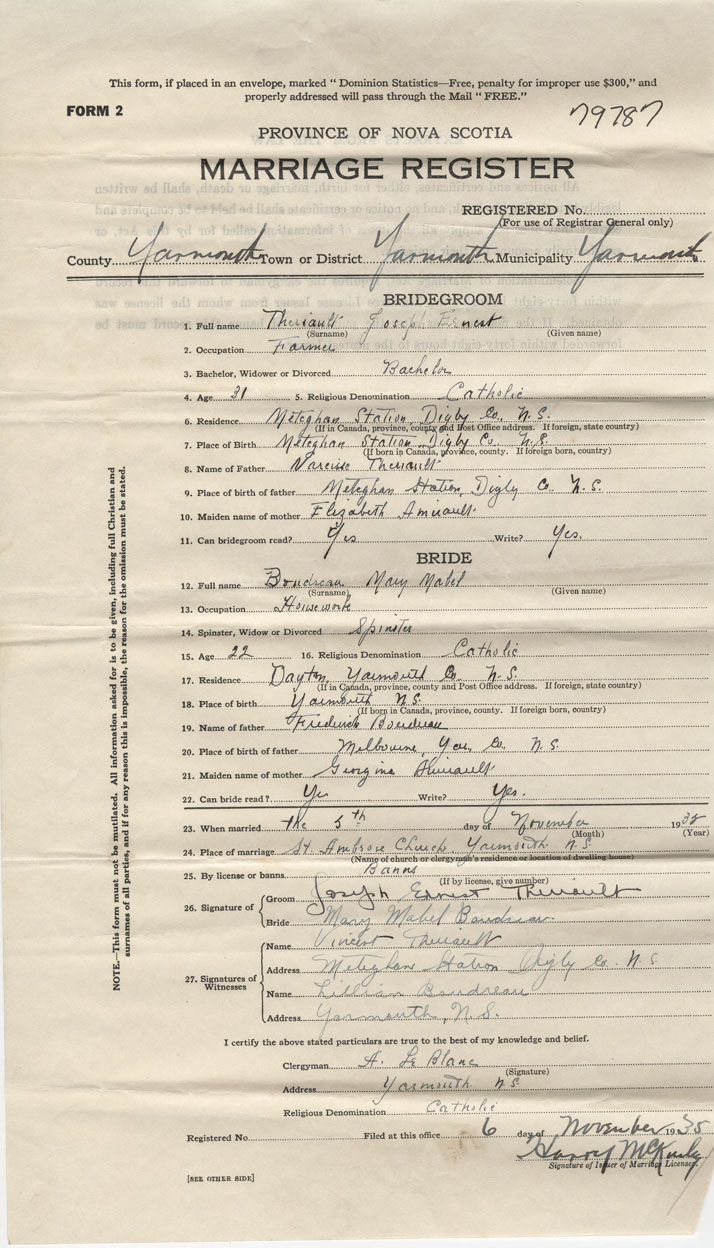 This form, if placed in an envelope, marked “ Dominion Statistics—Free, penalty for improper use $300,” and
properly addressed will pass through the Mail “ FREE.”
FORM 2
79787
PROVINCE OF NOVA SCOTIA
MARRIAGE REGISTER
REGISTERED No.
(For use of Registrar General only)
County Yarmouth Town or District Yarmouth Municipality Yarmouth
BRIDEGROOM
1. Full name Theriault Joseph Ernest
(Surname) (Given name)
2. Occupation Farmer
3. Bachelor, Widower or Divorced Bachelor
4. Age 31 5. Religious Denomination Catholic
6. Residence Meteghan Station, Digby Co. N.S.
(If in Canada, province, county and Post Office address. If foreign, state country)
7. Place of Birth Meteghan Station Digby Co. N.S.
(If born in Canada, province, county. If foreign born, country)
8. Name of Father Narcisse Theriault
9. Place of birth of father Meteghan Station, Digby Co. N.S.
10. Maiden name of mother Elizabeth Amirault
11. Can bridegroom read? Yes Write? Yes.
BRIDE
12. Full name Boudreau Mary Mabel
(Surname) (Given name)
13. Occupation Housework
14. Spinster, Widow or Divorced Spinster
15. Age 22 16. Religious Denomination Catholic
17. Residence Dayton, Yarmouth Co. N.S.
(If in Canada, province, county and Post Office address. If foreign, state country)
18. Place of birth Yarmouth N.S.
(If born in Canada, province, county. If foreign born, country)
19. Name of father Frederick Boudreau
20. Place of birth of father Melbourne, Yar. Co. N.S.
21. Maiden name of mother Georgina Amirault
22. Can bride read ? Yes Write? Yes.
23. When married the 5th day of November 19
(Month) (Year)
24. Place of marriage St Ambrose Church, Yarmouth N.S.
(Name of church or clergyman's residence or location of dwelling house)
25. By license or banns Banns
(If by license, give number)
26. Signature of
Groom Joseph Ernest Theriault
Bride Mary Mabel Boudreau
27. Signatures of Witnesses
Name Vincent Theriault
Address Meteghan Station Digby Co. N.S.
Name Lillian Boudreau
Address Yarmouth, N.S.
I certify the above stated particulars are true to the best of my knowledge and belief.
Clergyman A. Le Blanc
(Signature)
Address Yarmouth N.S.
Religious Denomination Catholic
Registered No. Filed at this office 6 day of November 1935
Harry
Signature of Issuer of Marriage Licenses.
[SEE OTHER SIDE]
NOTE.—This form must not be mutilated. All information asked for is to be given, including full Christian and
surnames of all parties, and if for any reason this is impossible, the reason for the omission must be stated.